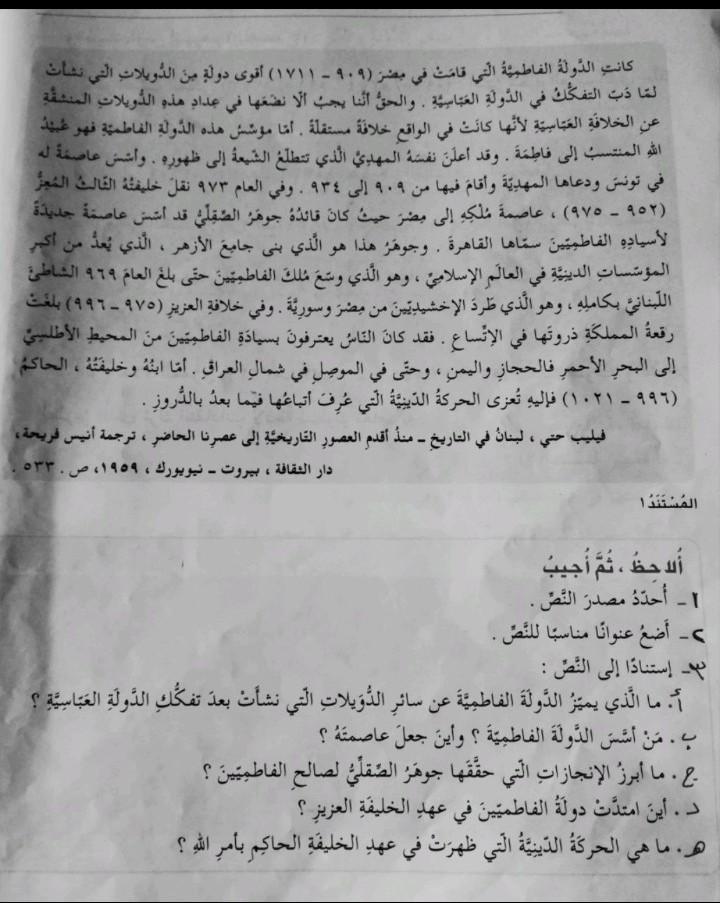 كانتِ الدَّولَةُ الفاطميَّةُ الَّتي قامَتْ في مِصْرَ (٩٠٩ – ١١٧١) أقوى دولَةٍ مِنَ الدُّويلاتِ الَّتي نشأتْ
لمّا دَبَّ التفكُّكُ في الدَّولَةِ العَبّاسِيَّةِ . والحقُّ أنَّنا يجبُ ألّا نضعَها في عِدادِ هذِهِ الدُّويلاتِ المنشقَّةِ
عنِ الخلافَةِ العَبّاسِيَةِ لأنَّها كانَتْ في الواقعِ خلافَةً مستقلَّةً . أمّا مؤسِّسُ هذه الدَّولَةِ الفاطميّةِ فهو عُبَيْدُ
اللهِ المنتسبُ إلى فاطِمَةَ . وقد أعلَنَ نفسَهُ المهديَّ الَّذي تتطلَّعُ الشّيعةُ إلى ظهورِهِ . وأسّسَ عاصمةً له
في تونسَ ودعاها المهديّةَ وأقامَ فيها من ٩٠٩ إلى ٩٣٤ . وفي العام ٩٧٣ نقلَ خليفتُهُ الثّالثُ المُعِزُّ
(٩٥٢ – ٩٧٥) ، عاصمةَ مُلْكِهِ إلى مِصْرَ حيثُ كانَ قائدُهُ جوهَرُ الصِّقِلِّيُّ قد أسّسَ عاصمةً جديدَةً
لأسيادِهِ الفاطمِيّينَ سمّاها القاهرةَ . وجوهَرُ هذا هو الَّذي بنى جامِعَ الأزهرِ ، الَّذي يُعدُّ من أكبرِ
المؤسّساتِ الدينيَّةِ في العالَمِ الإسلاميِّ ، وهو الَّذي وسّعَ مُلكَ الفاطمِيّينَ حتّى بلغَ العامَ ٩٦٩ الشّاطئَ
اللّبنانيَّ بكاملِهِ ، وهو الَّذي طَردَ الإخشيديّينَ من مِصْرَ وسوريَّةَ . وفي خلافةِ العزيزِ (٩٧٥ – ٩٩٦) بلغَتْ
رقعةُ المملكَةِ ذروتَها في الإتّساعِ . فقد كانَ النّاسُ يعترفونَ بسيادَةِ الفاطمِيّينَ منَ المحيطِ الأطلسيِّ
إلى البحرِ الأحمرِ فالحجازِ واليمنِ ، وحتّى في الموصِلِ في شمالِ العراقِ . أمّا ابنُهُ وخليفَتُهُ ، الحاكمُ
(٩٩٦ – ١٠٢١) فإليهِ تُعزى الحركةُ الدّينيَّةُ الَّتي عُرِفَ أتباعُها فيما بعدُ بالدُّروزِ .
فيليب حتي ، لبنانُ في التاريخِ – منذُ أقدمِ العصورِ التّاريخيَّةِ إلى عصرِنا الحاضرِ ، ترجمة أنيس فريحة ،
دار الثقافة ، بيروت – نيويورك ، ١٩٥٩، ص . ٥٣٣ .
المُسْتَنَدُ ١
أُلاحِظُ ، ثُمَّ أُجيبُ
١- أُحدّدُ مصدرَ النَّصِّ .
٢- أَضعُ عنوانًا مناسبًا للنَّصِّ .
٣- إستنادًا إلى النَّصِّ :
أ. ما الَّذي يميّزُ الدَّولَةَ الفاطميَّةَ عن سائرِ الدُّوَيلاتِ الّتي نشأَتْ بعدَ تفكُّكِ الدَّولَةِ العَبّاسِيَّةِ ؟
ب . مَنْ أسَّسَ الدَّولَةَ الفاطمِيّةَ ؟ وأينَ جعلَ عاصمتَهُ ؟
ج . ما أبرزُ الإنجازاتِ الّتي حقَّقَها جوهَرُ الصِّقلِّيُّ لصالحِ الفاطمِيّينَ ؟
د . أينَ امتدَّتْ دولَةُ الفاطميّينَ في عهدِ الخليفَةِ العزيزِ ؟
هـ . ما هي الحركَةُ الدّينيَّةُ الّتي ظهرَتْ في عهدِ الخليفَةِ الحاكِمِ بأمرِ اللهِ ؟